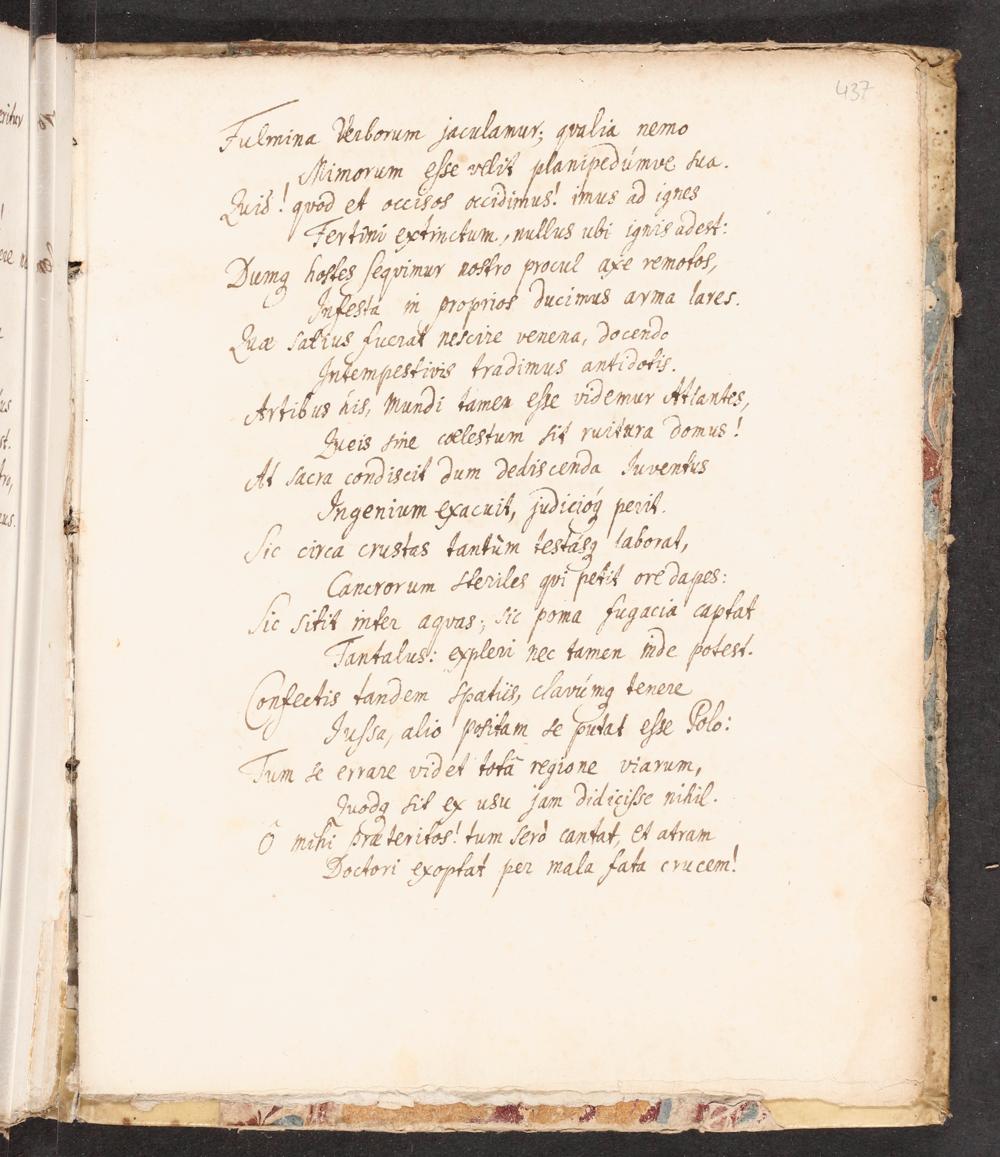 437
Fulmina Verborum jaculamur; qvalia nemo
Mimorum esse velit planipedúmve sua.
Quid! qvod et occisos occidimus! imus ad ignes
extinctum, nullus ubi ignis adest:
Dumq hostes seqvimur nostro procul axe remotos,
Infesta in proprios ducimus arma lares.
Quæ satius fuerat nescire venena, docendo
Intempestivis tradimus antidotis.
Artibus his, Mundi tamen esse videmur Atlantes,
Queis sine cœlestum sit ruitura domus!
At sacra condiscit dum dediscenda Iuventus
Ingenium exacuit, judicióq perit.
Sic circa crustas tantùm testásq laborat,
Cancrorum steriles qvi petit ore dapes:
Sic sitit inter aqvas; sic poma fugacia captat
Tantalus: expleri nec tamen inde potest.
Confectis tandem spatiis, clavúmq tenere
Jussa, alio positam se putat esse Polo:
Tum se errare videt totâ regione viarum,
Quodq sit ex usu jam didicisse nihil.
Ô mihi præteritos! tum serò cantat, et atram
Doctori exoptat per mala fata crucem!